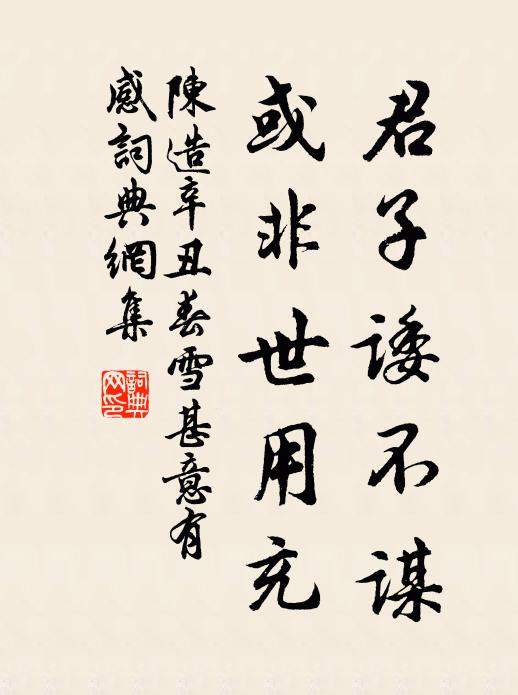 君子諉不謀
或非世用充
陳造辛丑春雪甚意有
感詞典網集
詞典
网印